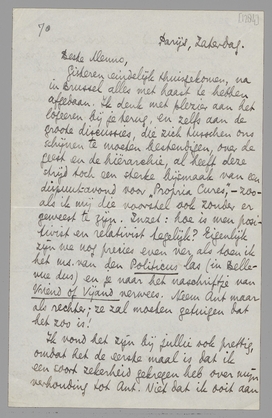 70
Parijs, Zaterdag.
Beste Menno,
Gisteren eindelijk thuisgekomen, na
in Brussel alles met haast te hebben
afgedaan. Ik denk met plezier aan het
logeeren bij je terug, en zelfs aan de
groote discussies, die zich tusschen ons
schijnen te moeten bestendigen, over de
geest en de hiërarchie, al heeft deze
strijd toch een sterke bijsmaak van een
dispuutavond voor „Propria Cures", – zoo-
als ik mij die voorstel ook zonder er
geweest te zijn. Inzet: hoe is men posi-
tivist en relativist tegelijk? Eigenlijk
zijn we nog precies even ver als toen ik
het ms. van den Politicus las (in Belle-
vue dus) en je naar het naschrift van
Vriend of Vijand verwees. Neem Ant maar
als rechter; ze zal moeten getuigen dat
het zoo is!
Ik vond het zijn bij jullie ook prettig,
omdat het de eerste maal is dat ik
een soort zekerheid gekregen heb over mijn
verhouding tot Ant. Niet dat ik ooit aan